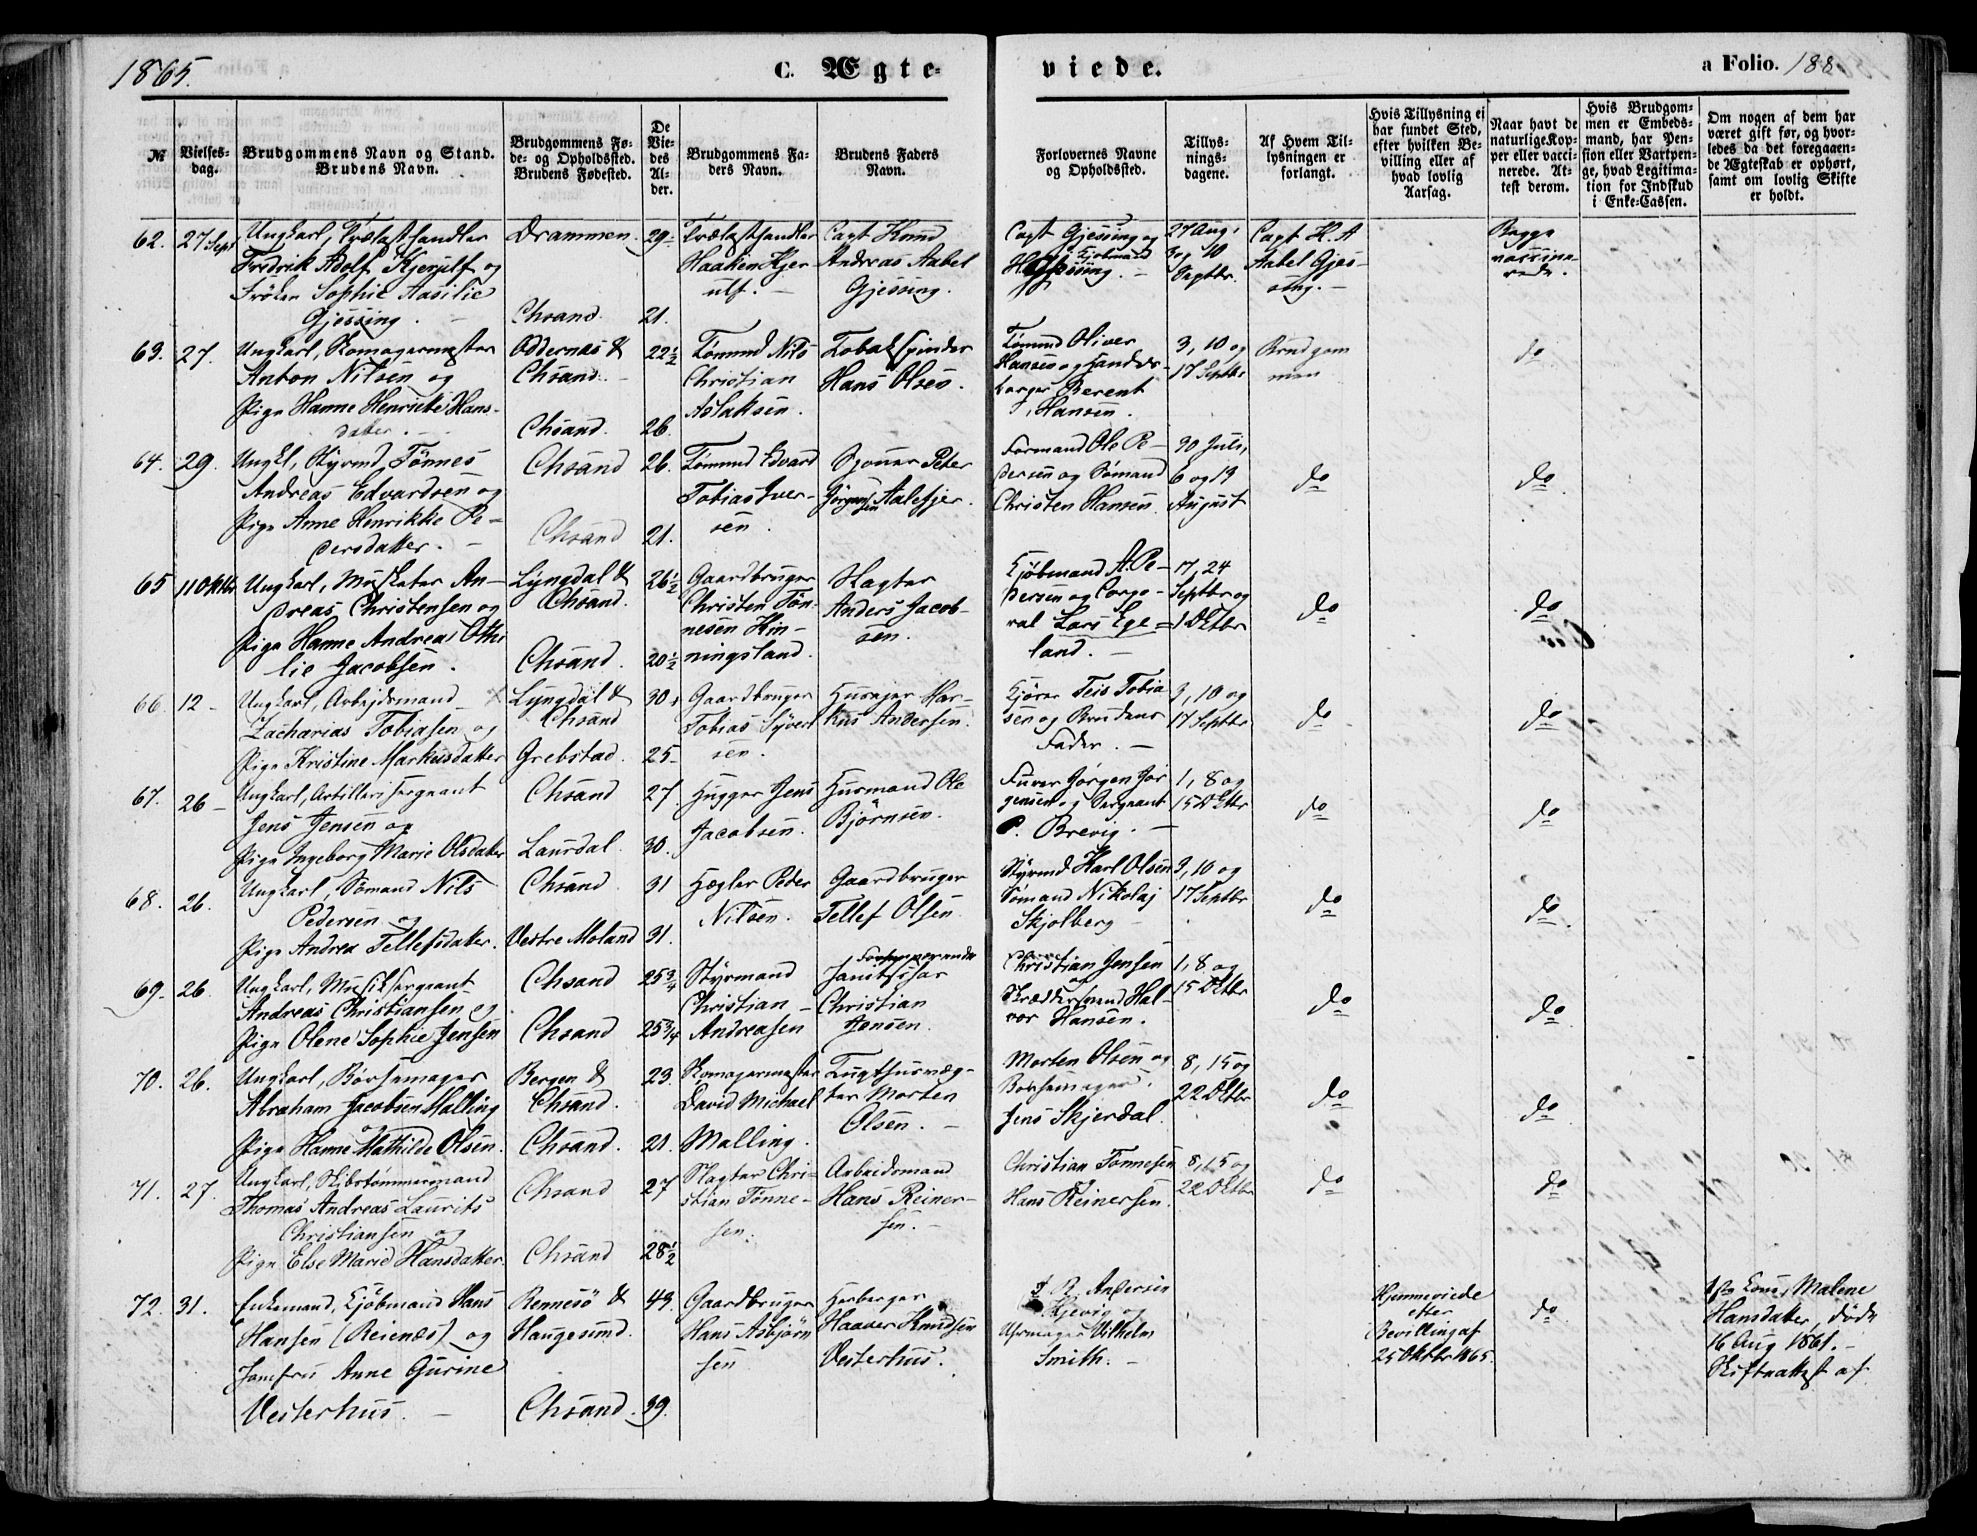 1865.
C. Ægte-
viede.
a Folio. 188
№
Vielses-
dag.
Brudgommens Navn og Stand.
Brudens Navn.
Brudgommens Fø-
de- og Opholdssted.
Brudens Fødested.
De
Vie-
des
Al-
der.
Brudgommens Fa-
ders Navn.
Brudens Faders
Navn.
Forlovernes Navne
og Opholdssted.
Tillys-
nings-
dagene.
Af Hvem Til-
lysningen er
forlangt.
Hvis Tillysning ei
har fundet Sted,
efter hvilken Be-
villing eller af
hvad lovlig
Aarsag.
Naar havt de
naturlige Kop-
per eller vacci-
nerede. At-
test derom.
Hvis Brudgom-
men er Embeds-
mand, har Pen-
sion eller Vartpen-
ge, hvad Legitima-
tion for Indskud
i Enke-Cassen.
Om nogen af dem har
været gift før, og hvor-
ledes da det foregaaen-
de Ægteskab er ophørt,
samt om lovlig Skifte
er holdt.
62. 27 Sept
Ungkarl, Trælasthandler
Fredrik Adolf Kjerulf og
Frøken Sophie Aasilie
Gjessing.
Drammen.
Chsand.
29
21.
Trælasthandler
Haaken Kjer
ulf.
Capt Knud
Andreas Aabel
Gjessing.
Capt Gjessing og
Kjøbmand
Gjessing.
27 Aug,
3 og 10
Septbr.
Capt H. A
Aabel Gjes-
sing.
Begge
vaccine-
rede.
63. 27.
Ungkarl, Skomagermester
Anton Nilsen og
Pige Hanne Henrikke Hans-
datter.
Oddernes &
Chsand.
Chsand.
22½
26.
Tømmd Nils
Christian
Aslaksen.
Tobakspinder
Hans Olsen.
Tømmd Oliver
Hansen og Handels-
borger Berent
Hansen.
3, 10 og
17 Septbr
Brudgom
men
do
64. 29.
Ungkl, Styrmd Tønnes
Andreas Edvardsen og
Pige Anne Henrikke Pe-
dersdatter.
Chsand
Chsand
26.
21.
Tømmd Edvard
Tobias Iver-
sen.
Sjouer Peter
Jørgensen Aalefjer.
Formand Ole Pe-
dersen og Sømand
Christen Hansen.
30 Juli,
6 og 13
August
do
do
65 11 Oktbr
Ungkarl, Musketer An-
dreas Christensen og
Pige Hanne Andrea Othi
lie Jacobsen.
Lyngdal &
Chsand.
Chsand.
26½
20½
Gaardbruger
Christen Tøn-
nesen Kin-
ningsland.
Slagter
Anders Jacob-
sen.
Kjøbmand A. Pe-
dersen og Corpo-
ral Lars Ege-
land.
17, 24
Septbr og
1 Oktbr
do
do
66. 12
Ungkarl, Arbejdsmand
Zacharias Tobiasen og
Pige Kristine Markusdatter
Lyngdal &
Chsand
Grebstad.
30
25
Gaardbruger
Tobias Syvert
sen.
Huusejer Mar-
kus Andersen.
Kjører Teis Tobia
sen og Brudens
Fader.
3, 10 og
17 Septbr
do
do
67. 26
Ungkarl, Artillerisergeant
Jens Jensen og
Pige Ingeborg Marie Olsdatter
Chsand
Laurdal.
27.
30.
Hugger Jens
Jacobsen.
Husmand Ole
Bjørnsen.
Furer Jørgen Jør
gensen og Sergeant
P. Brevig.
1, 8 og
15 Oktbr
do
do
68. 26.
Ungkarl, Sømand Nils
Pedersen og
Pige Andrea Tellefsdatter.
Chsand
Vestre Moland
31
31.
Hægler Peder
Nilsen.
Gaardbruger
Tellef Olsen.
Styrmd Karl Olsen
Sømand Nikolaj
Skjolberg
3, 10 og
17 Septbr
do
do
69. 26.
Ungkarl, Musiksergeant
Andreas Christiansen og
Pige Olene Sophie Jensen
Chsand
Chsand
25¾
25¾
Styrmand
Christian
Andreasen
Forhenværende
Janitshar
Christian
Jensen.
Christian Jensen
og
Skræddersvend Hal-
vor Hansen.
1, 8 og
15 Oktbr
do
do
70. 26.
Ungkarl, Børsemager
Abraham Jacobsen Malling
og
Pige Hanne Mathilde Olsen.
Bergen &
Chsand.
Chsand.
23.
21.
Skomagermester
David Michael
Malling.
Tugthusvæg-
ter Morten
Olsen.
Morten Olsen og
Børsemager
Jens Skjerdal.
8, 15 og
22 Oktbr
do
do
71. 27.
Ungkarl, Skibstømmermand
Thomas Andreas Laurits
Christiansen og
Pige Else Marie Hansdatter.
Chsand
Chsand
27
28½
Slagter Chri-
stian Tønne-
sen.
Arbeidsmand
Hans Reiner-
sen.
Christian Tønnesen
og
Hans Reinersen.
8, 15 og
22 Oktbr
do
do
72. 31.
Enkemand, Kjøbmand Hans
Hansen (Reienæs) og
Jomfru Anne Gurine
Vesterhus.
Rennesö &
Haugesund.
Chsand.
43.
39.
Gaardbruger
Hans Asbjørn
sen
Herberger
Haaver Knudsen
Vesterhus.
Andersen
Kjevig og
Uhrmager Vilhelm
Smith.
Hjemmeviede
efter
Bevilling af
25 Oktbr 1865.
do
Kone, Malene
Hansdatter, døde
16 Aug 1861.
Skifteattest af